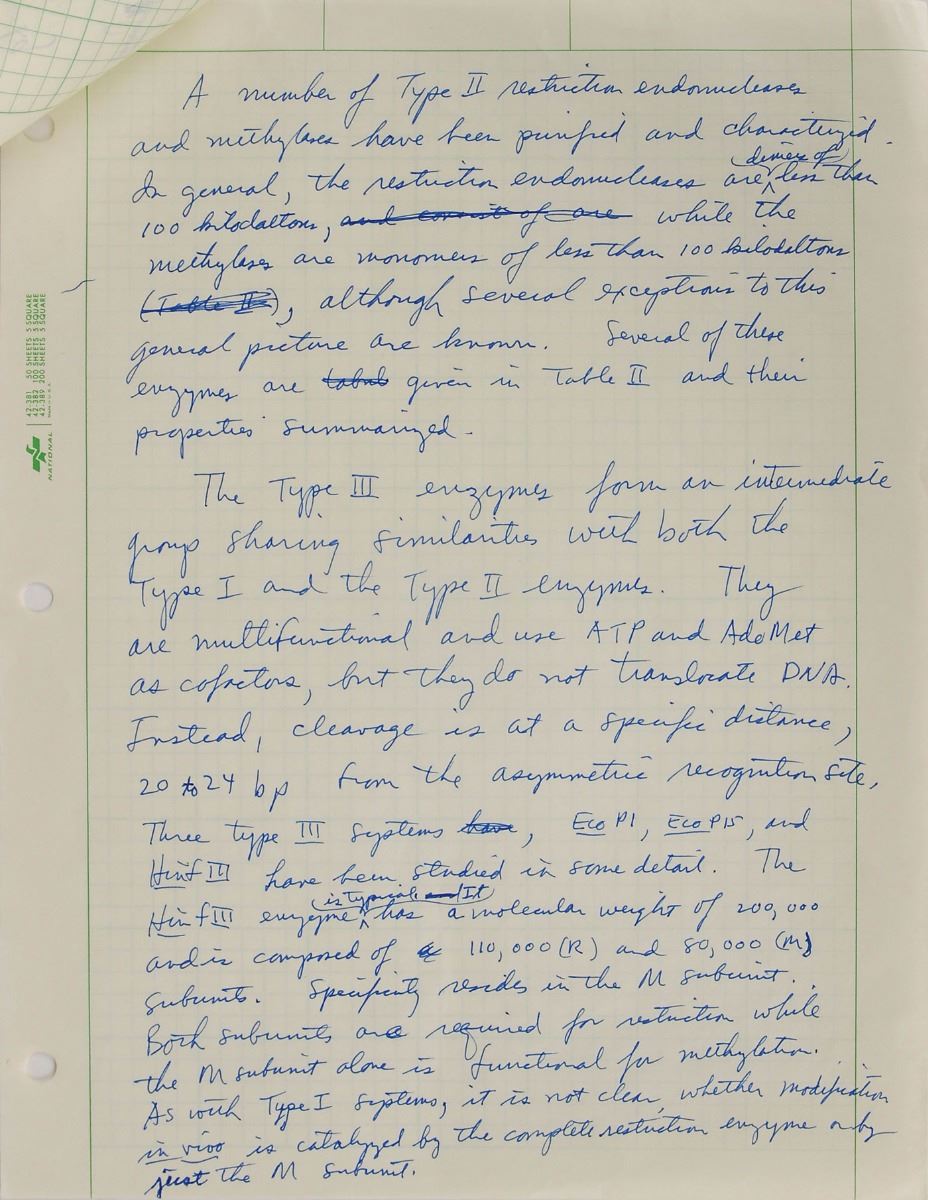 A number of Type II restriction endonucleases
and methylases have been purified and characterized.
dimers of
In general, the restriction endonucleases are less than
100 kilodaltons, and consist of are while the
methylases are monomers of less than 100 kilodaltons
(Table II), although several exceptions to this
general picture are known. Several of these
enzymes are tabul given in Table II and their
properties summarized.
The Type III enzymes form an intermediate
group sharing similarities with both the
Type I and the Type II enzymes. They
are multifunctional and use ATP and AdoMet
as cofactors, but they do not translocate DNA.
Instead, cleavage is at a specific distance,
20 to 24 bp from the asymmetric recognition site.
Three type III systems have, Eco P1, Eco P15, and
Hinf III have been studied in some detail. The
is typical. and It
Hinf III enzyme has a molecular weight of 200,000
and is composed of a 110,000 (R) and 80,000 (M)
subunits. Specificity resides in the M subunit.
Both subunits are required for restriction while
the M subunit alone is functional for methylation.
As with Type I systems, it is not clear whether modification
in vivo is catalyzed by the complete restriction enzyme or by
just the M subunit.
42-381 50 SHEETS 5 SQUARE
42-382 100 SHEETS 5 SQUARE
42-389 200 SHEETS 5 SQUARE
NATIONAL